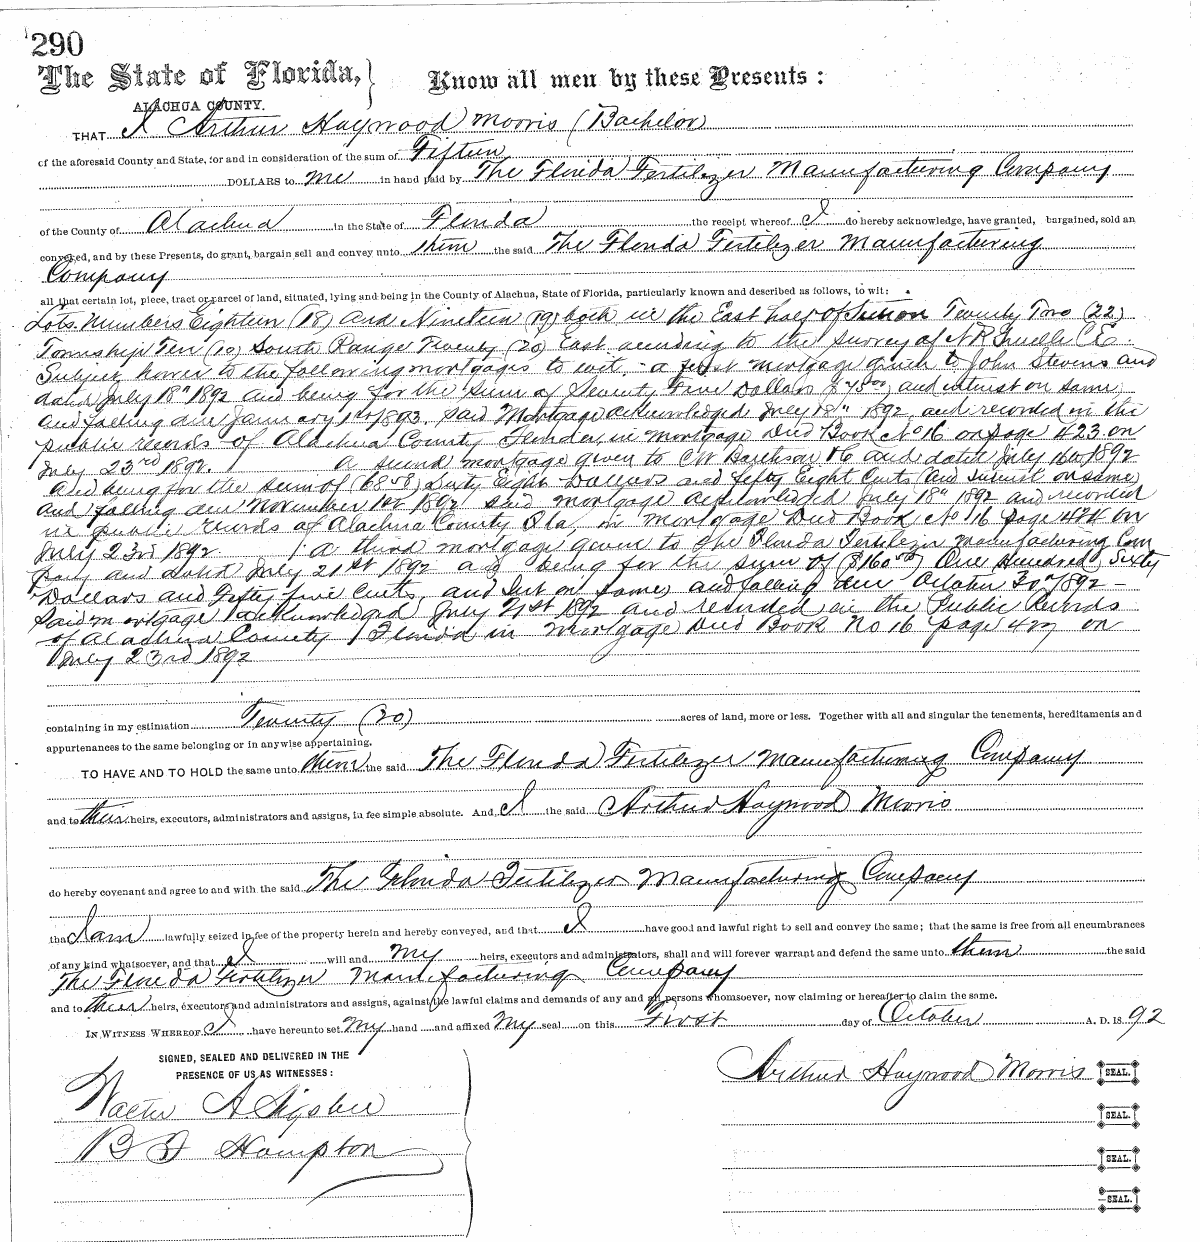 290
The State of Florida,
Know all men by these Presents:
ALACHUA COUNTY.
THAT I Arthur Haywood Morris (Bachelor)
of the aforesaid County and State, for and in consideration of the sum of Fifteen
DOLLARS to me in hand paid by The Florida Fertilizer Manufacturing Company
of the County of Alachua in the State of Florida the receipt whereof I do hereby acknowledge, have granted, bargained, sold an
conveyed, and by these Presents, do grant, bargain sell and convey unto them the said The Florida Fertilizer Manufacturing
Company
all that certain lot, piece, tract or parcel of land, situated, lying and being in the County of Alachua, State of Florida, particularly known and described as follows, to wit:
Lots Numbers Eighteen (18) and Nineteen (19) both in the East half of Section Twenty Two (22)
Township Ten (10) South Range Twenty (20) East according to the survey of N R C E
Subject hower to the following mortgages to wit, - a first mortgage given to John Stevens and
dated July 18th 1892 and being for the sum of Seventy Five Dollars $75.00 and interest on same
and falling due January 1st 1893. Said Mortgage acknowledged July 18th 1892 and recorded in the
public records of Alachua County Florida, in mortgage Deed Book No 16 on page 423 on
July 23rd 1892. a second mortgage given to C W & Co and dated July 16th 1892
and being for the sum of (68.58) Sixty Eight Dollars and fifty Eight Cents and interest on same
and falling due November 1st 1892 said mortgage acknowledged July 18th 1892 and recorded
in public records of Alachua County Fla, in mortgage Deed Book No 16 page 424 on
July 23rd 1892 a third mortgage given to the Florida Fertilizer Manufacturing Com
pany and dated July 21st 1892 and being for the sum of One Hundred Sixty
Dollars and Fifty five Cents, and Int on same and falling due October 30th 1892 -
Said mortgage acknowledged July 21st 1892 and recorded in the Public Records
of Alachua County Florida in Mortgage Deed Book No 16 page 427 on
July 23rd 1892
containing in my estimation Twenty (20) acres of land, more or less. Together with all and singular the tenements, hereditaments and
appurtenances to the same belonging or in anywise appertaining.
TO HAVE AND TO HOLD the same unto them the said The Florida Fertilizer Manufacturing Company
and to their heirs, executors, administrators and assigns, in fee simple absolute. And I the said Arthur Haywood Morris
do hereby covenant and agree to and with the said The Florida Fertilizer Manufacturing Company
that I am lawfully seized in fee of the property herein and hereby conveyed, and that I have good and lawful right to sell and convey the same; that the same is free from all encumbrances
of any kind whatsoever, and that I will and my heirs, executors and administrators, shall and will forever warrant and defend the same unto them the said
The Florida Fertilizer Manufacturing Company
and to their heirs, executors and administrators and assigns, against the lawful claims and demands of any and all persons whomsoever, now claiming or hereafter to claim the same.
IN WITNESS WHEREOF, I have hereunto set my hand and affixed my seal on this First day of October A. D. 18 92
SIGNED, SEALED AND DELIVERED IN THE
PRESENCE OF US AS WITNESSES:
Arthur Haywood Morris SEAL.
Walter A. Sigsbee
SEAL.
B F Hampton
SEAL.
SEAL.